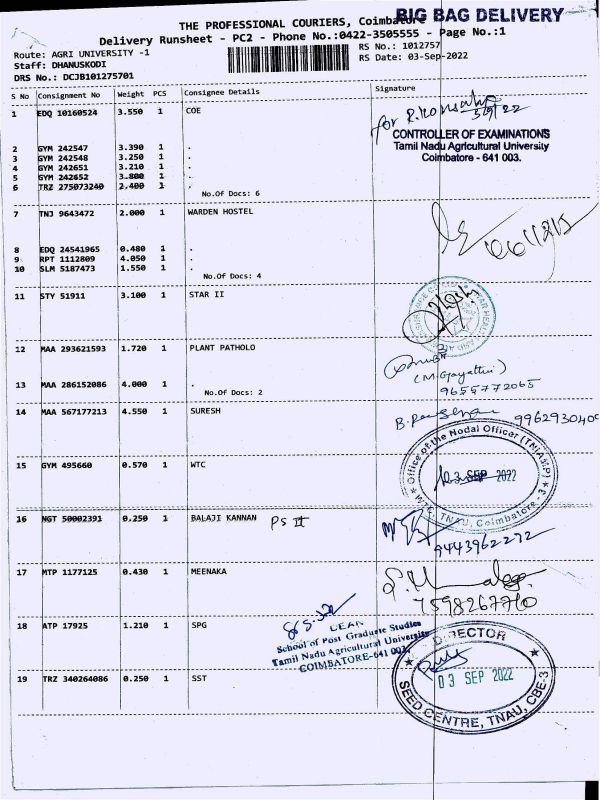 BIG BAG DELIVERY
THE PROFESSIONAL COURIERS, Coimbatore
Delivery Runsheet - PC2 - Phone No.:0422-3505555 - Page No.:1
Route: AGRI UNIVERSITY -1
RS No.: 1012757
Staff: DHANUSKODI
RS Date: 03-Sep-2022
DRS No.: DCJB101275701
S No Consignment No Weight PCS Consignee Details Signature
1 EDQ 10160524 3.550 1 COE
for
CONTROLLER OF EXAMINATIONS
Tamil Nadu Agricultural University
Coimbatore - 641 003.
2 GYM 242547 3.390 1 .
3 GYM 242548 3.250 1 .
4 GYM 242651 3.210 1 .
5 GYM 242652 3.800 1 .
6 TRZ 275073240 2.400 1 .
No.Of Docs: 6
7 TNJ 9643472 2.000 1 WARDEN HOSTEL
8 EDQ 24541965 0.480 1 .
9 RPT 1112809 4.050 1 .
10 SLM 5187473 1.550 1 .
No.Of Docs: 4
11 STY 51911 3.100 1 STAR II
12 MAA 293621593 1.720 1 PLANT PATHOLO
(M.Gayathri)
9655772065
13 MAA 286152086 4.000 1 .
No.Of Docs: 2
14 MAA 567177213 4.550 1 SURESH
Office of the Nodal Officer (TNIAMP)
WTC, TNAU, Coimbatore - 3
15 GYM 495660 0.570 1 WTC
03 SEP 2022
16 NGT 50002391 0.250 1 BALAJI KANNAN PS II
9443962272
17 MTP 1177125 0.430 1 MEENAKA
7598267710
18 ATP 17925 1.210 1 SPG
DEAN
School of Post Graduate Studies
Tamil Nadu Agricultural University
COIMBATORE-641 003.
DIRECTOR
03 SEP 2022
SEED CENTRE, TNAU, CBE-3
19 TRZ 340264086 0.250 1 SST